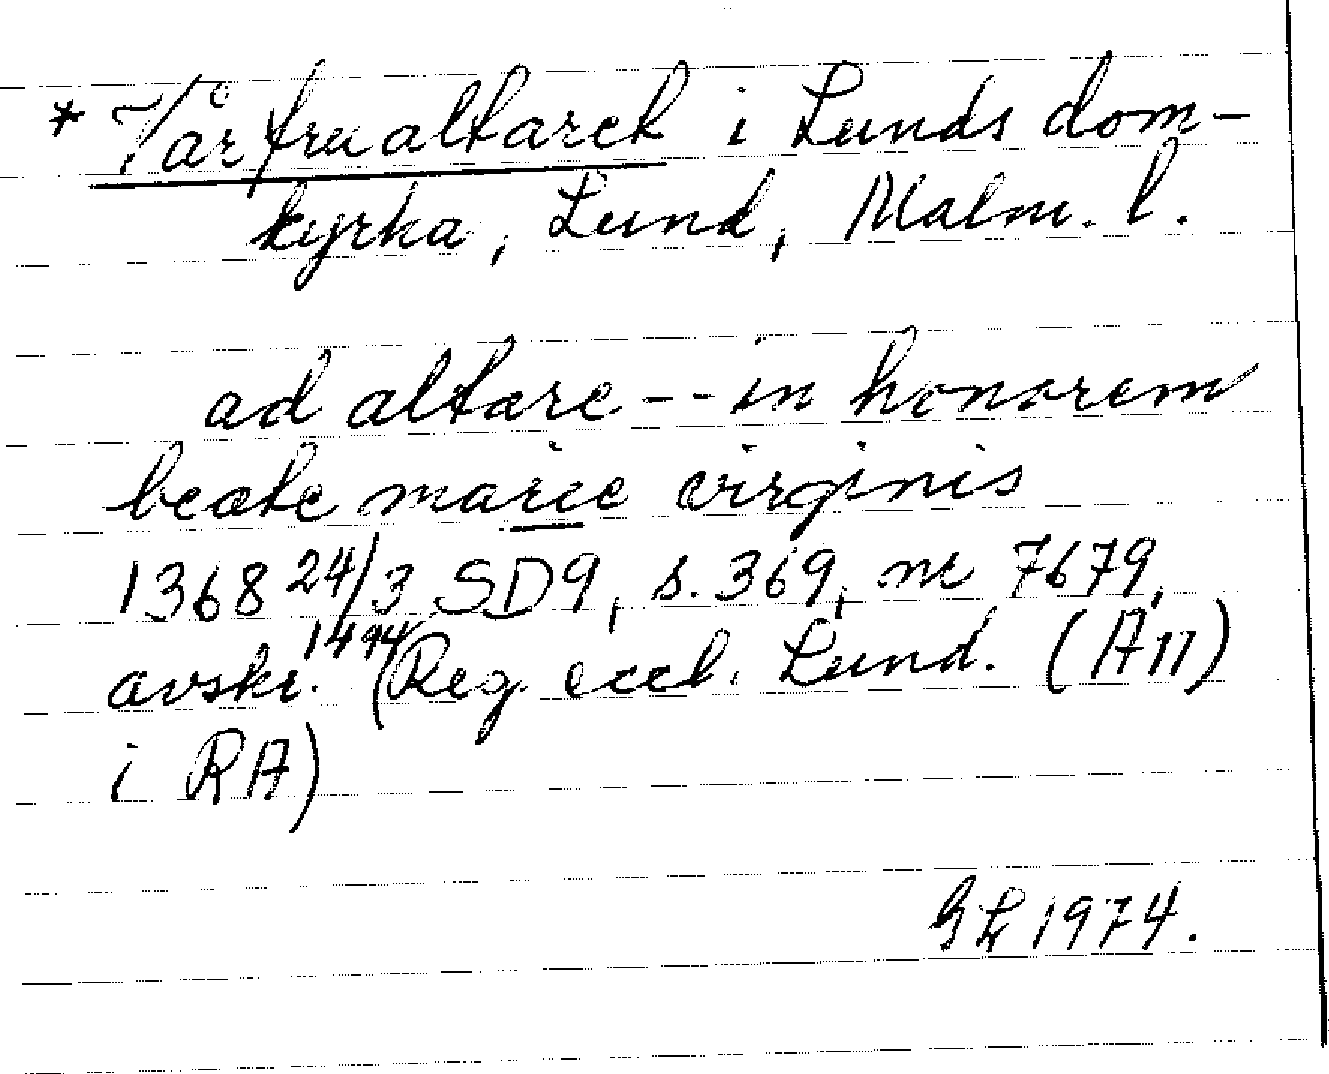 * Vårfrualtaret i Lunds dom-
kyrka, Lund, Malm. l.
ad altare -- in honorem
beate marie virginis
1368 24/3 SD9, s. 369, nr 7679,
avskr. 1494 (Reg. eccl. Lund. (A11)
i RA)
GL 1974.